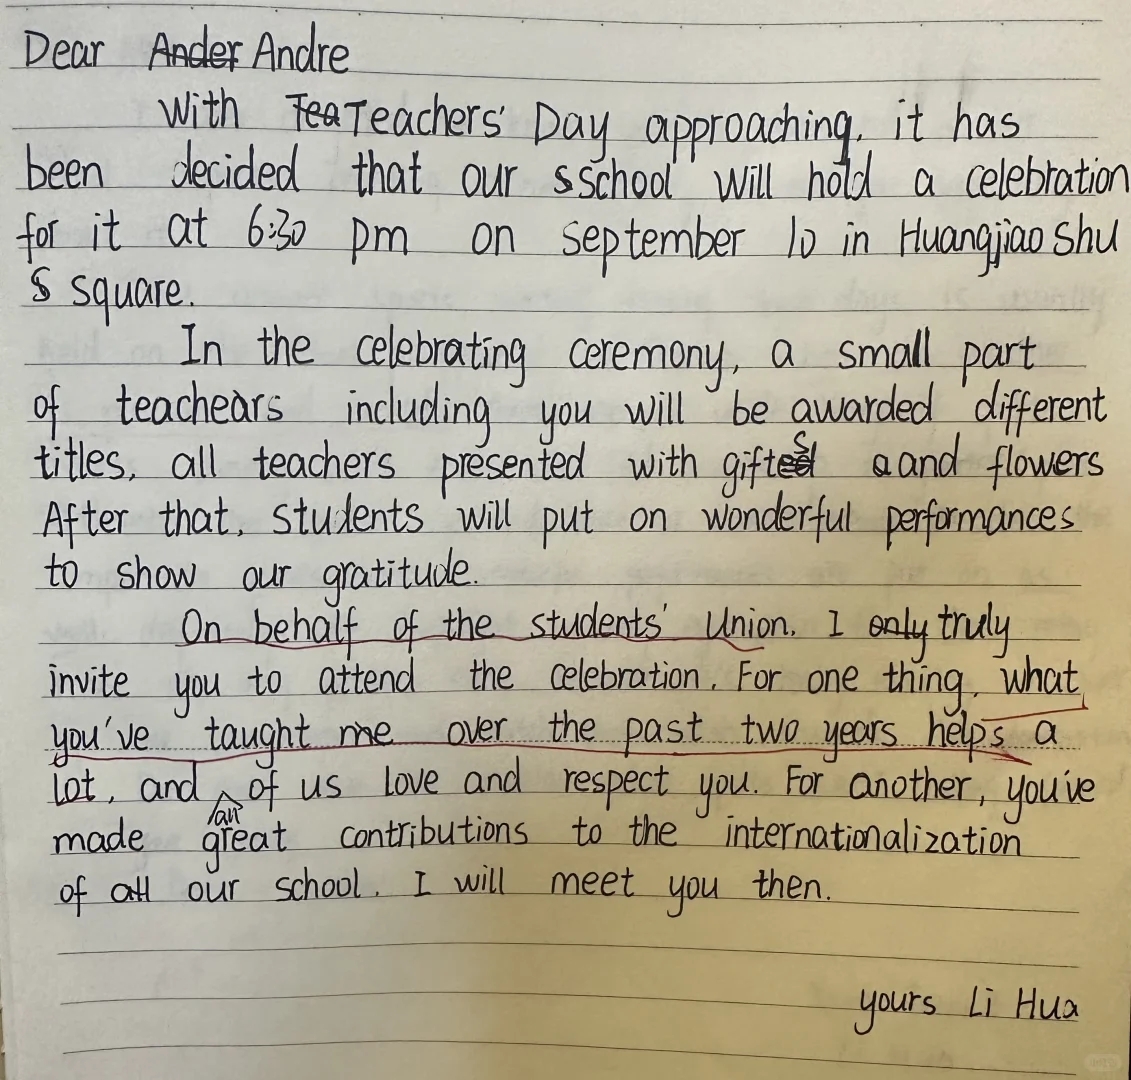 Dear Ander Andre
With Tea Teachers' Day approaching, it has
been decided that our s school will hold a celebration
for it at 6:30 pm on september 10 in Huangjiao Shu
S square.
In the celebrating ceremony, a small part
of teachears including you will be awarded different
titles, all teachers presented with gifts a and flowers
After that, students will put on wonderful performances
to show our gratitude.
On behalf of the students' Union, I only truly
invite you to attend the celebration. For one thing, what
you've taught me over the past two years helps a
lot, and all of us love and respect you. For another, you've
made great contributions to the internationalization
of all our school. I will meet you then.
yours Li Hua